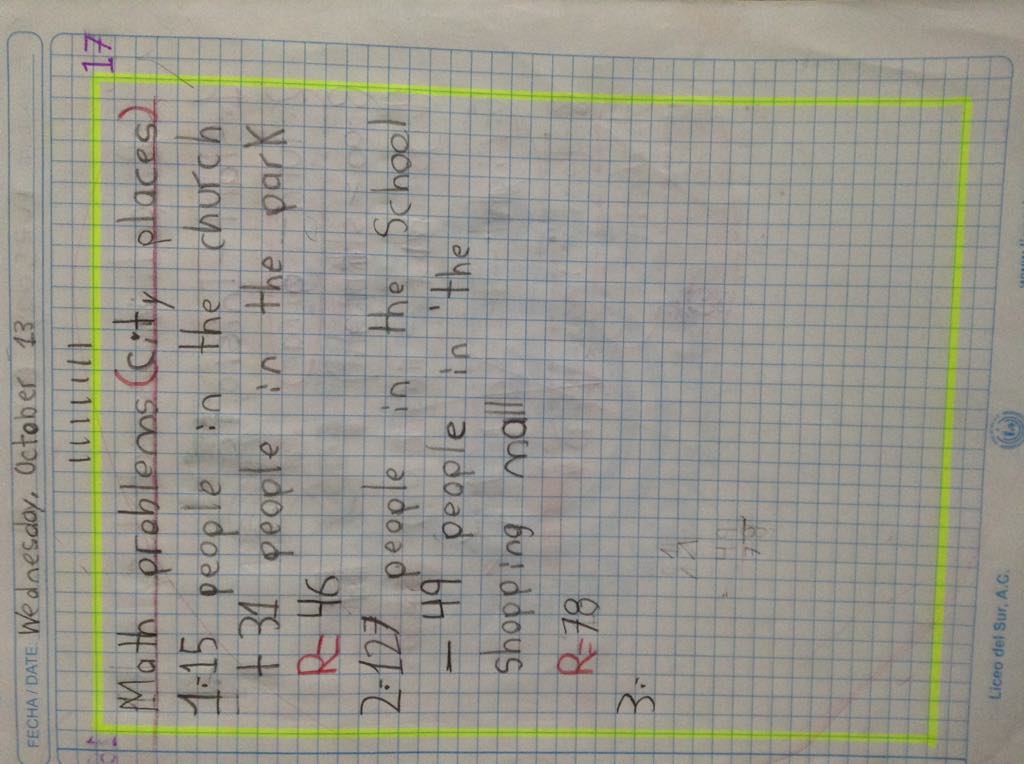 FECHA / DATE. Wednesday, October 13
17
Math problems (City places)
1:-15 people in the church
+ 31 people in the park
R= 46
2:-127 people in the School
- 49 people in the
shopping mall
R= 78
3:-
- 49
78
Liceo del Sur, A.C.